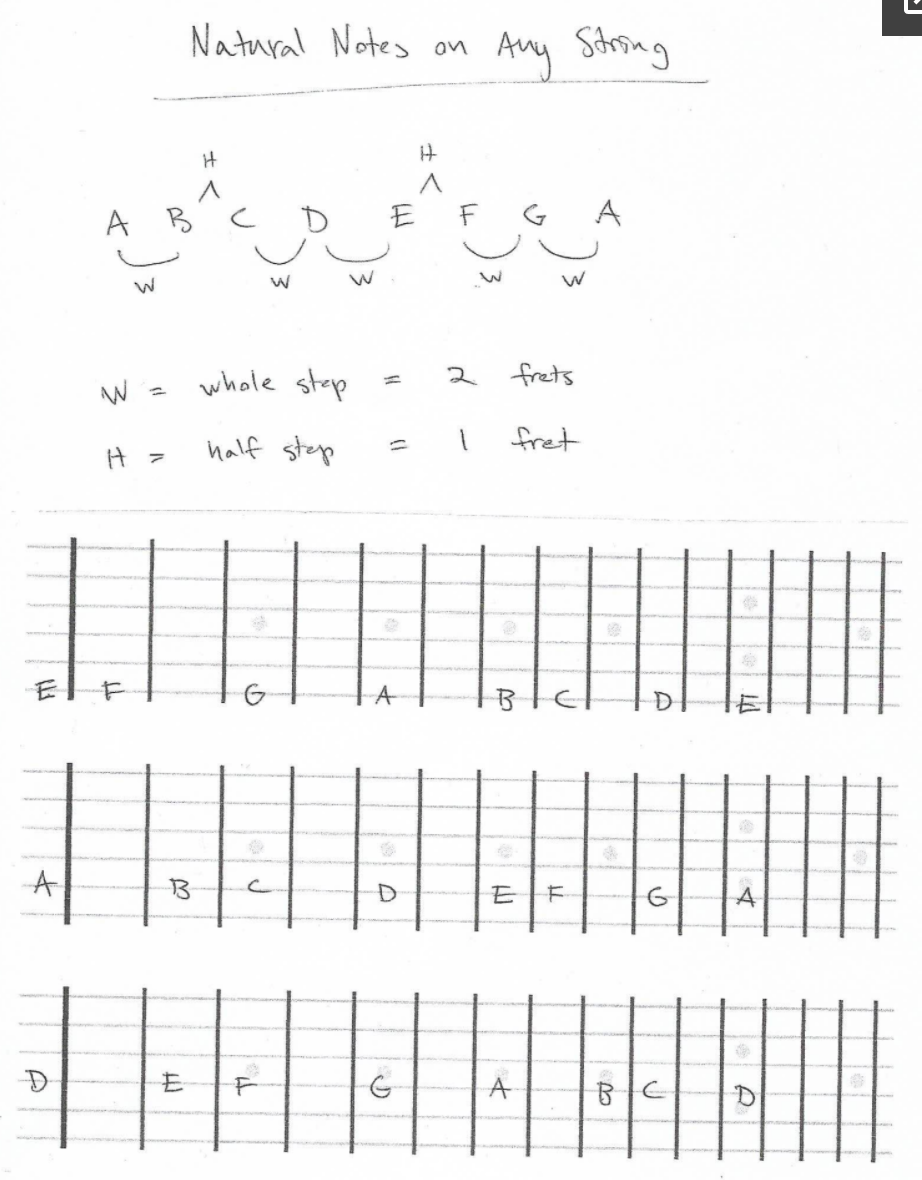 Natural Notes on Any String
H H
A B C D E F G A
W W W W W
W = whole step = 2 frets
H = half step = 1 fret
E F G A B C D E
A B C D E F G A
D E F G A B C D